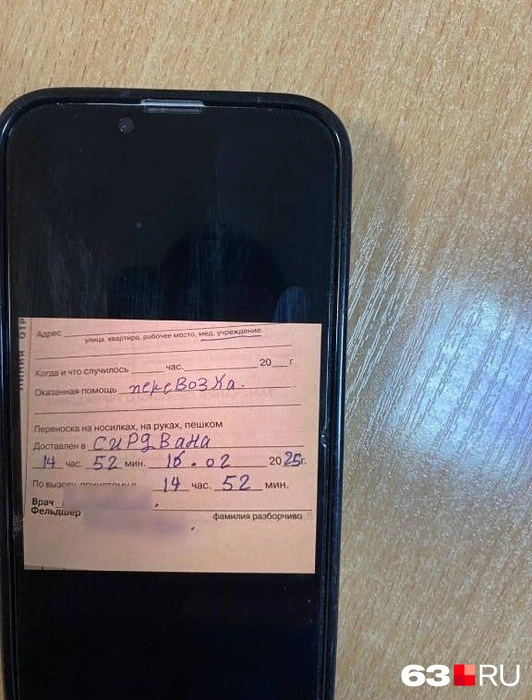 ЛИНИЯ ОТР
Адрес
улица, квартира, рабочее место, мед. учреждение
Когда и что случилось час. 20 г.
Оказанная помощь перевозка.
Переноска на носилках, на руках, пешком
Доставлен в СИРДВАНА
14 час. 52 мин. 16.02 2025г.
По вызову принятому в 14 час. 52 мин.
Врач
Фельдшер фамилия разборчиво
63 RU